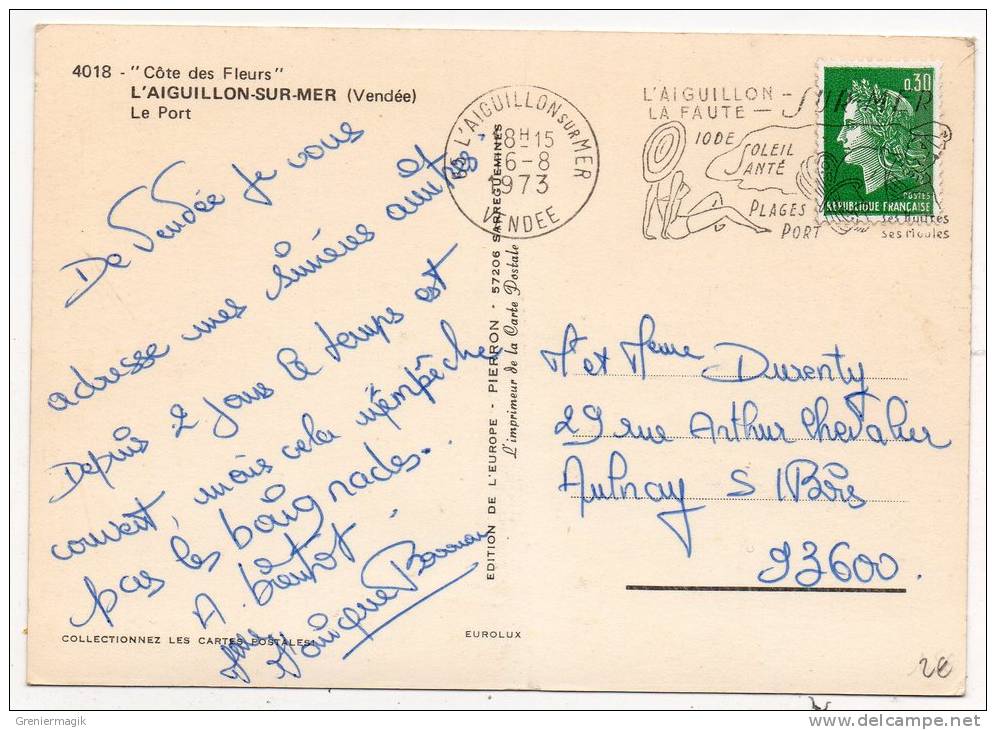 4018 - "Côte des Fleurs"
L'AIGUILLON-SUR-MER (Vendée)
Le Port
De Vendée je vous
adresse mes sincères amitiés.
Depuis 2 jours le temps est
couvert, mais cela n'empêche
pas les baignades.
A bientôt.
COLLECTIONNEZ LES CARTES POSTALES!
EUROLUX
EDITION DE L'EUROPE - PIERRON - 57206 SARREGUEMINES
L'imprimeur de la Carte Postale
85 L'AIGUILLON SUR MER
18H15
6-8
1973
VENDEE
L'AIGUILLON -
LA FAUTE - SUR-MER
IODE
SOLEIL
SANTÉ
PLAGES
PORT
Ses Huîtres
Ses Moules
0,30
POSTES
REPUBLIQUE FRANÇAISE
Mr et Meme Durenty
29 rue Arthur Chevalier
Aulnay S/Bois
93600.
2€
Greniermagik
delcampe.net